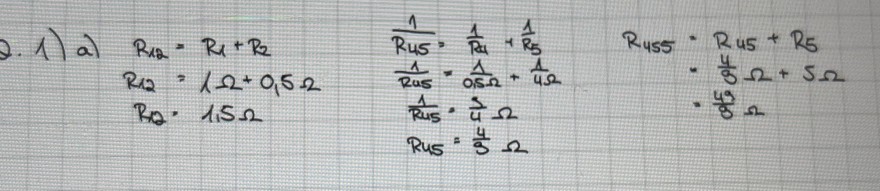 2. 1) a) R12 = R1 + R2
R12 = 1Ω + 0,5Ω
R12 = 1,5Ω
1/R45 = 1/R4 + 1/R5
1/R45 = 1/0,5Ω + 1/4Ω
1/R45 = 9/4 Ω
R45 = 4/9 Ω
R455 = R45 + R5
= 4/9 Ω + 5Ω
= 49/9 Ω